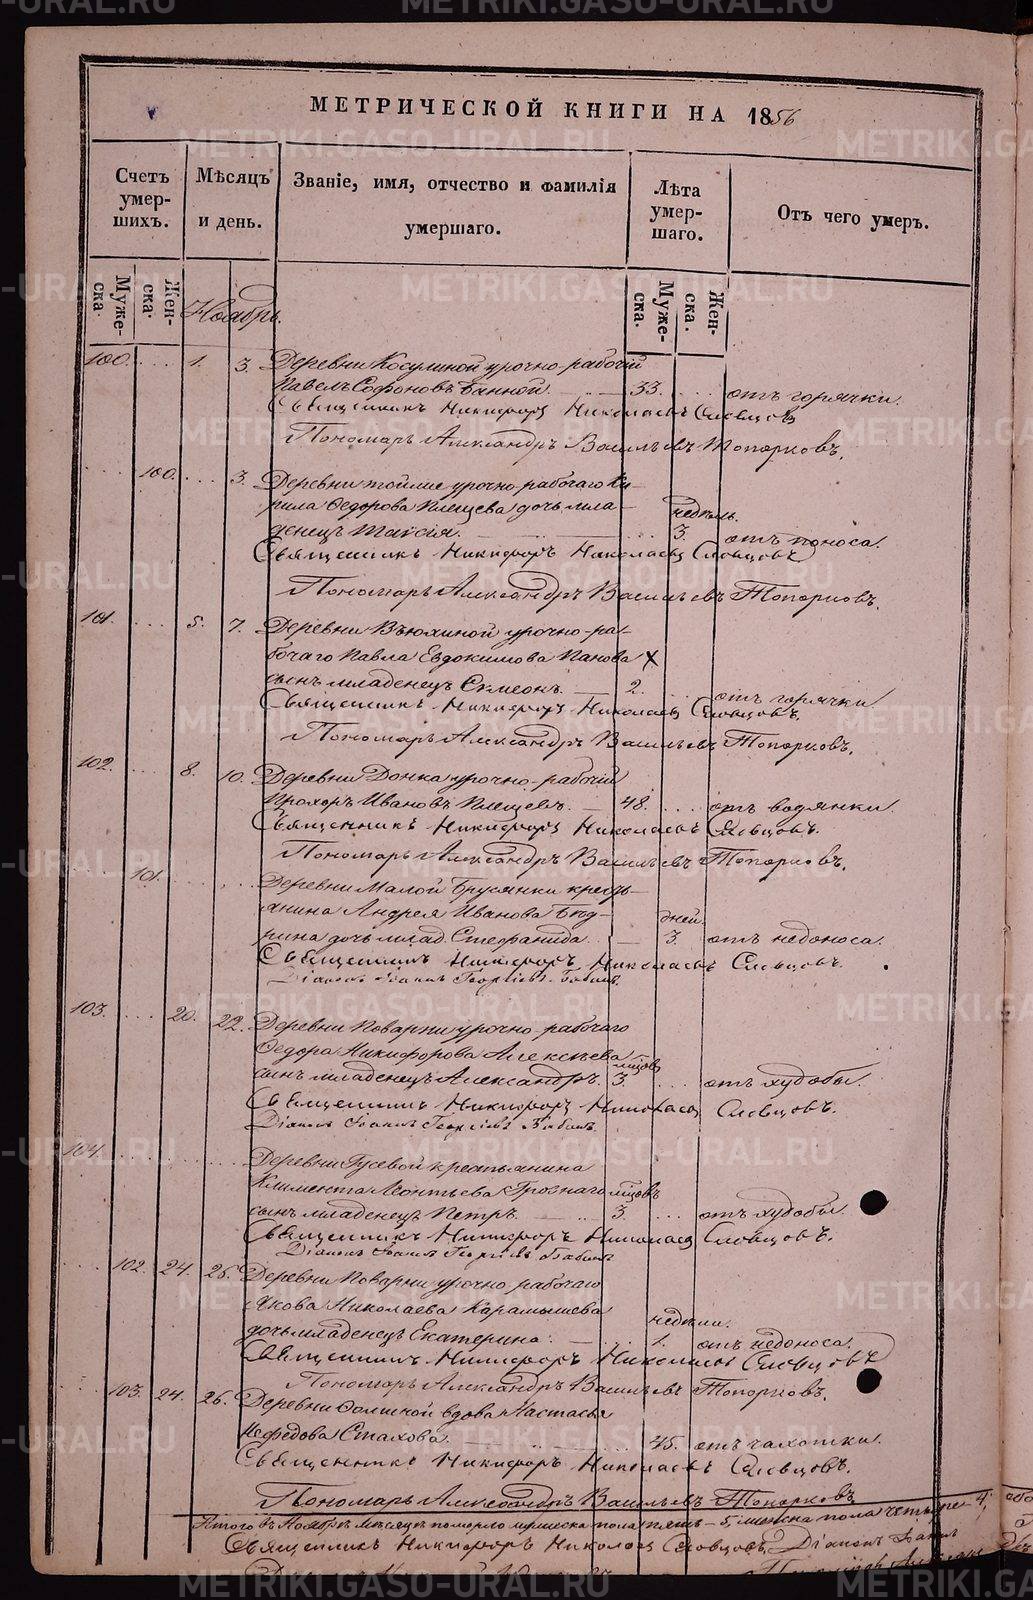 МЕТРИЧЕСКОЙ КНИГИ НА 1856
Счетъ умершихъ.
Мѣсяцъ и день.
Званіе, имя, отчество и фамилія умершаго.
Лѣта умершаго.
Отъ чего умеръ.
Мужеска.
Женска.
Ноябрь.
Мужеска.
Женска.
100. 1. 3. Деревни Косулиной урочно-рабочій
Павелъ Софоновъ Банной. 33. отъ горячки.
Священникъ Никифоръ Николаевъ Словцовъ
Пономарь Александръ Васильевъ Топорковъ.
100. 3. Деревни урочно-рабочаго Ки-
рила Федорова Плещева дочь мла- недѣль.
денецъ Таисія. 3. отъ поноса.
Священникъ Никифоръ Николаевъ Словцовъ
Пономарь Александръ Васильевъ Топорковъ.
101. 5. 7. Деревни Вьюхиной урочно-ра-
бочаго Павла Евдокимова Панова
сынъ младенецъ Симеонъ. 2. отъ горячки
Священникъ Никифоръ Николаевъ Словцовъ.
Пономарь Александръ Васильевъ Топорковъ.
102. 8. 10. Деревни урочно-рабочій
Прохоръ Ивановъ Плещевъ. 48. отъ водянки
Священникъ Никифоръ Николаевъ Словцовъ.
Пономарь Александръ Васильевъ Топорковъ.
101. Деревни Малой Брусянки кресть-
янина Андрея Иванова дней
дочь млад. Стефанида. 3. отъ недоноса.
Священникъ Никифоръ Николаевъ Словцовъ.
Діаконъ Іоаннъ Георгіевъ Бабинъ.
103. 20. 22. Деревни Поварни урочно-рабочаго
Федора Никифорова Алексѣева мѣсяцовъ
сынъ младенецъ Александръ. 3. отъ худобы.
Священникъ Никифоръ Николаевъ Словцовъ.
Діаконъ Іоаннъ Георгіевъ Бабинъ.
104. Деревни Гусевой крестьянина
Климента Леонтьева Грознаго мѣсяцовъ
сынъ младенецъ Петръ. 3. отъ худобы.
Священникъ Никифоръ Николаевъ Словцовъ.
Діаконъ Іоаннъ Георгіевъ Бабинъ
102. 24. 26. Деревни Поварни урочно-рабочаго
Якова Николаева Карамышева недѣли.
дочь младенецъ Екатерина. 1. отъ недоноса.
Священникъ Никифоръ Николаевъ Словцовъ
Пономарь Александръ Васильевъ Топорковъ.
103. 24. 26. Деревни вдова Настасья
Мефедова Стахова. 45. отъ чахотки.
Священникъ Никифоръ Николаевъ Словцовъ.
Пономарь Александръ Васильевъ Топорковъ
Итого въ Ноябрѣ мѣсяцѣ померло мужеска пола пять - 5, женска пола четыре - 4;
Священникъ Никифоръ Николаевъ Словцовъ, Діаконъ
METRIKI.GASO-URAL.RU